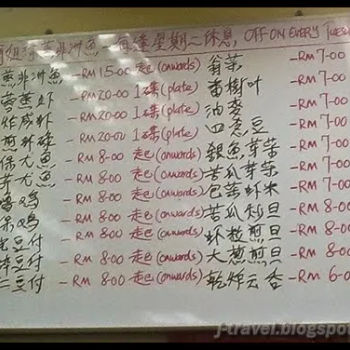 蒸非洲魚 - 每逢星期二休息, OFF ON EVERY Tuesday
蒸非洲魚 - RM 15-00 起 (onwards) 翁菜 - RM 7-00
- RM 20-00 1碟 (plate) 番樹叶 - RM 7-00
- RM 20-00 1碟 (plate) 油麥 - RM 7-00
- RM 20-00 1碟 (plate) 四意豆 - RM 7-00
魚 - RM 8-00 起 (onwards) 銀魚芽菜 - RM 7-00
魚 - RM 8-00 起 (onwards) 苦瓜芽菜 - RM 7-00
鸡 - RM 8-00 起 (onwards) 包菜虾米 - RM 7-00
鸡 - RM 8-00 起 (onwards) 苦瓜炒旦 - RM 8-00
豆付 - RM 8-00 起 (onwards) 虾粒煎旦 - RM 8-00
豆付 - RM 8-00 起 (onwards) 大葱煎旦 - RM 8-00
三豆付 - RM 8-00 起 (onwards) 乾焯云香 - RM 6-0
j-travel.blogspot